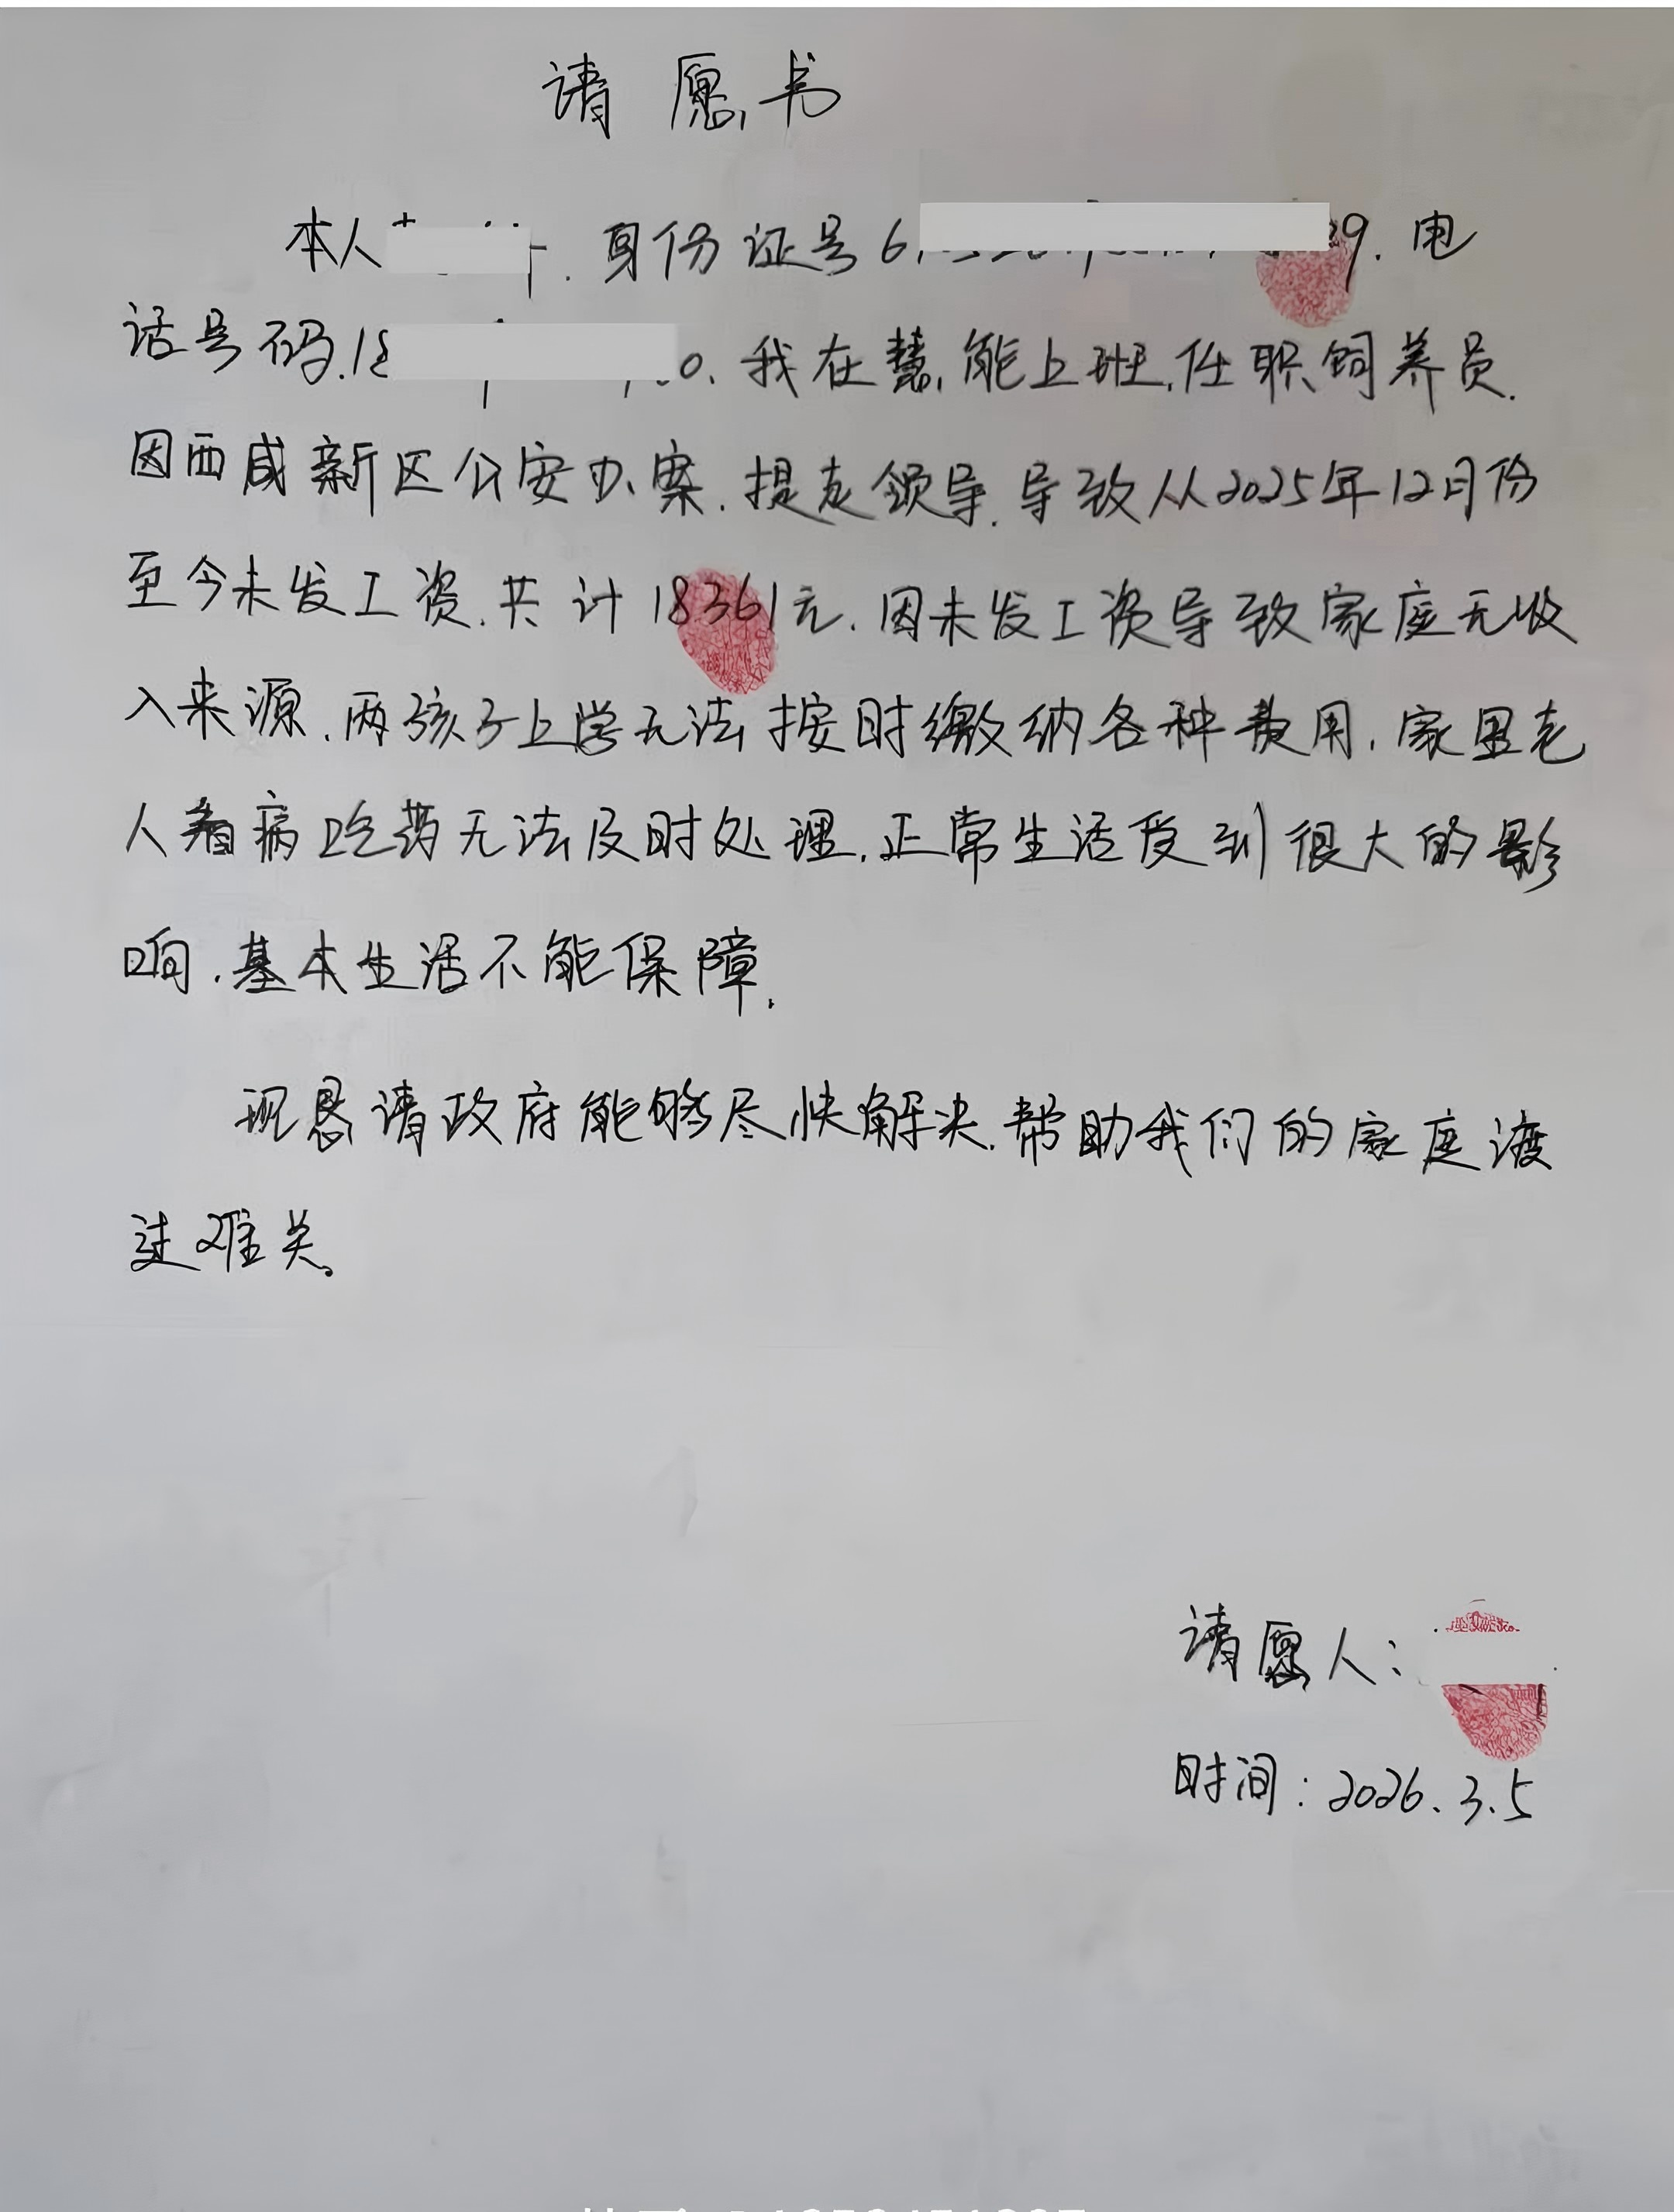 请愿书
本人 . 身份证号6 9. 电
话号码.18 0. 我在慧能上班.任职饲养员.
因西咸新区公安办案.提走领导.导致从2025年12月份
至今未发工资.共计18361元.因未发工资导致家庭无收
入来源.两孩子上学无法按时缴纳各种费用.家里老
人看病吃药无法及时处理.正常生活受到很大的影
响.基本生活不能保障.
现恳请政府能够尽快解决.帮助我们的家庭渡
过难关。
请愿人：
时间：2026.3.5